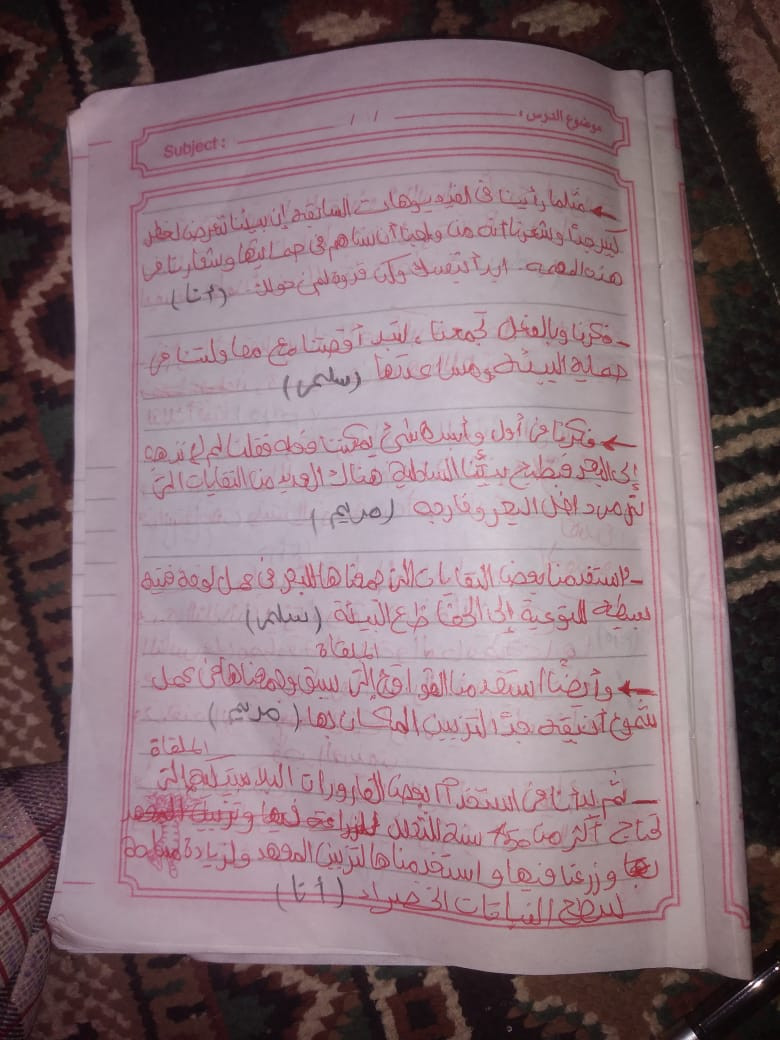 موضوع الدرس : / / Subject :
مثلما رئينا فى الفيديوهات السابقة إن بيئتنا تتعرض لخطر
كبير جدًا وشعرنا أنه من واجبنا أن نساهم فى حمايتها وشعارنا فى
هذه المهمه ابدأ بنفسك وكن قدوة لمن حولك (أنا)
- فكرنا وبالفعل تجمعنا، لتبدأ قصتنا مع محاولتنا فى
حماية البيئه ومساعدتها (سلمى)
فكرنا فى أول وأبسط شئ يمكننا فعله فقلنا لم لا نذهب
إلى البحر فطبع بيئتنا الساحلية هناك العديد من النفايات التى
ترمى داخل البحر وخارجه (مريم)
- استخدمنا بعض النفايات التى جمعناها البحر فى عمل لوحة فنيه
بسطه للتوعية إلى الحفاظ ع البيئة (سلمى)
الملقاة
وأيضًا استخدمنا القواقع التى سبق وجمعناها فى عمل
شموع أنيقه جدًا لتزيين المكان بها (مريم)
الملقاة
- ثم بدأنا فى استخدام بعض القارورات البلاستيكيه التى
تحتاج أكثر من 450 سنة للتحلل للزراعة فيها وتزيين المعهد
وزرعنا فيها واستخدمناها لتزيين المعهد ولزيادة
لسطح النباتات الخضراء (أنا)